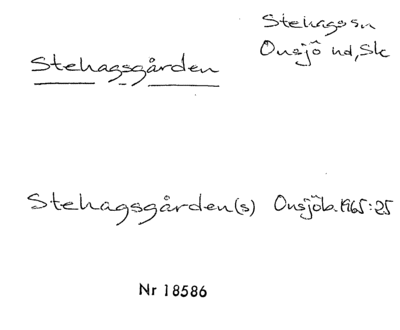 Stehags sn
Onsjö hd, Sk
Stehagsgården
Stehagsgården(s) Onsjöb. 1965:25
Nr 18586